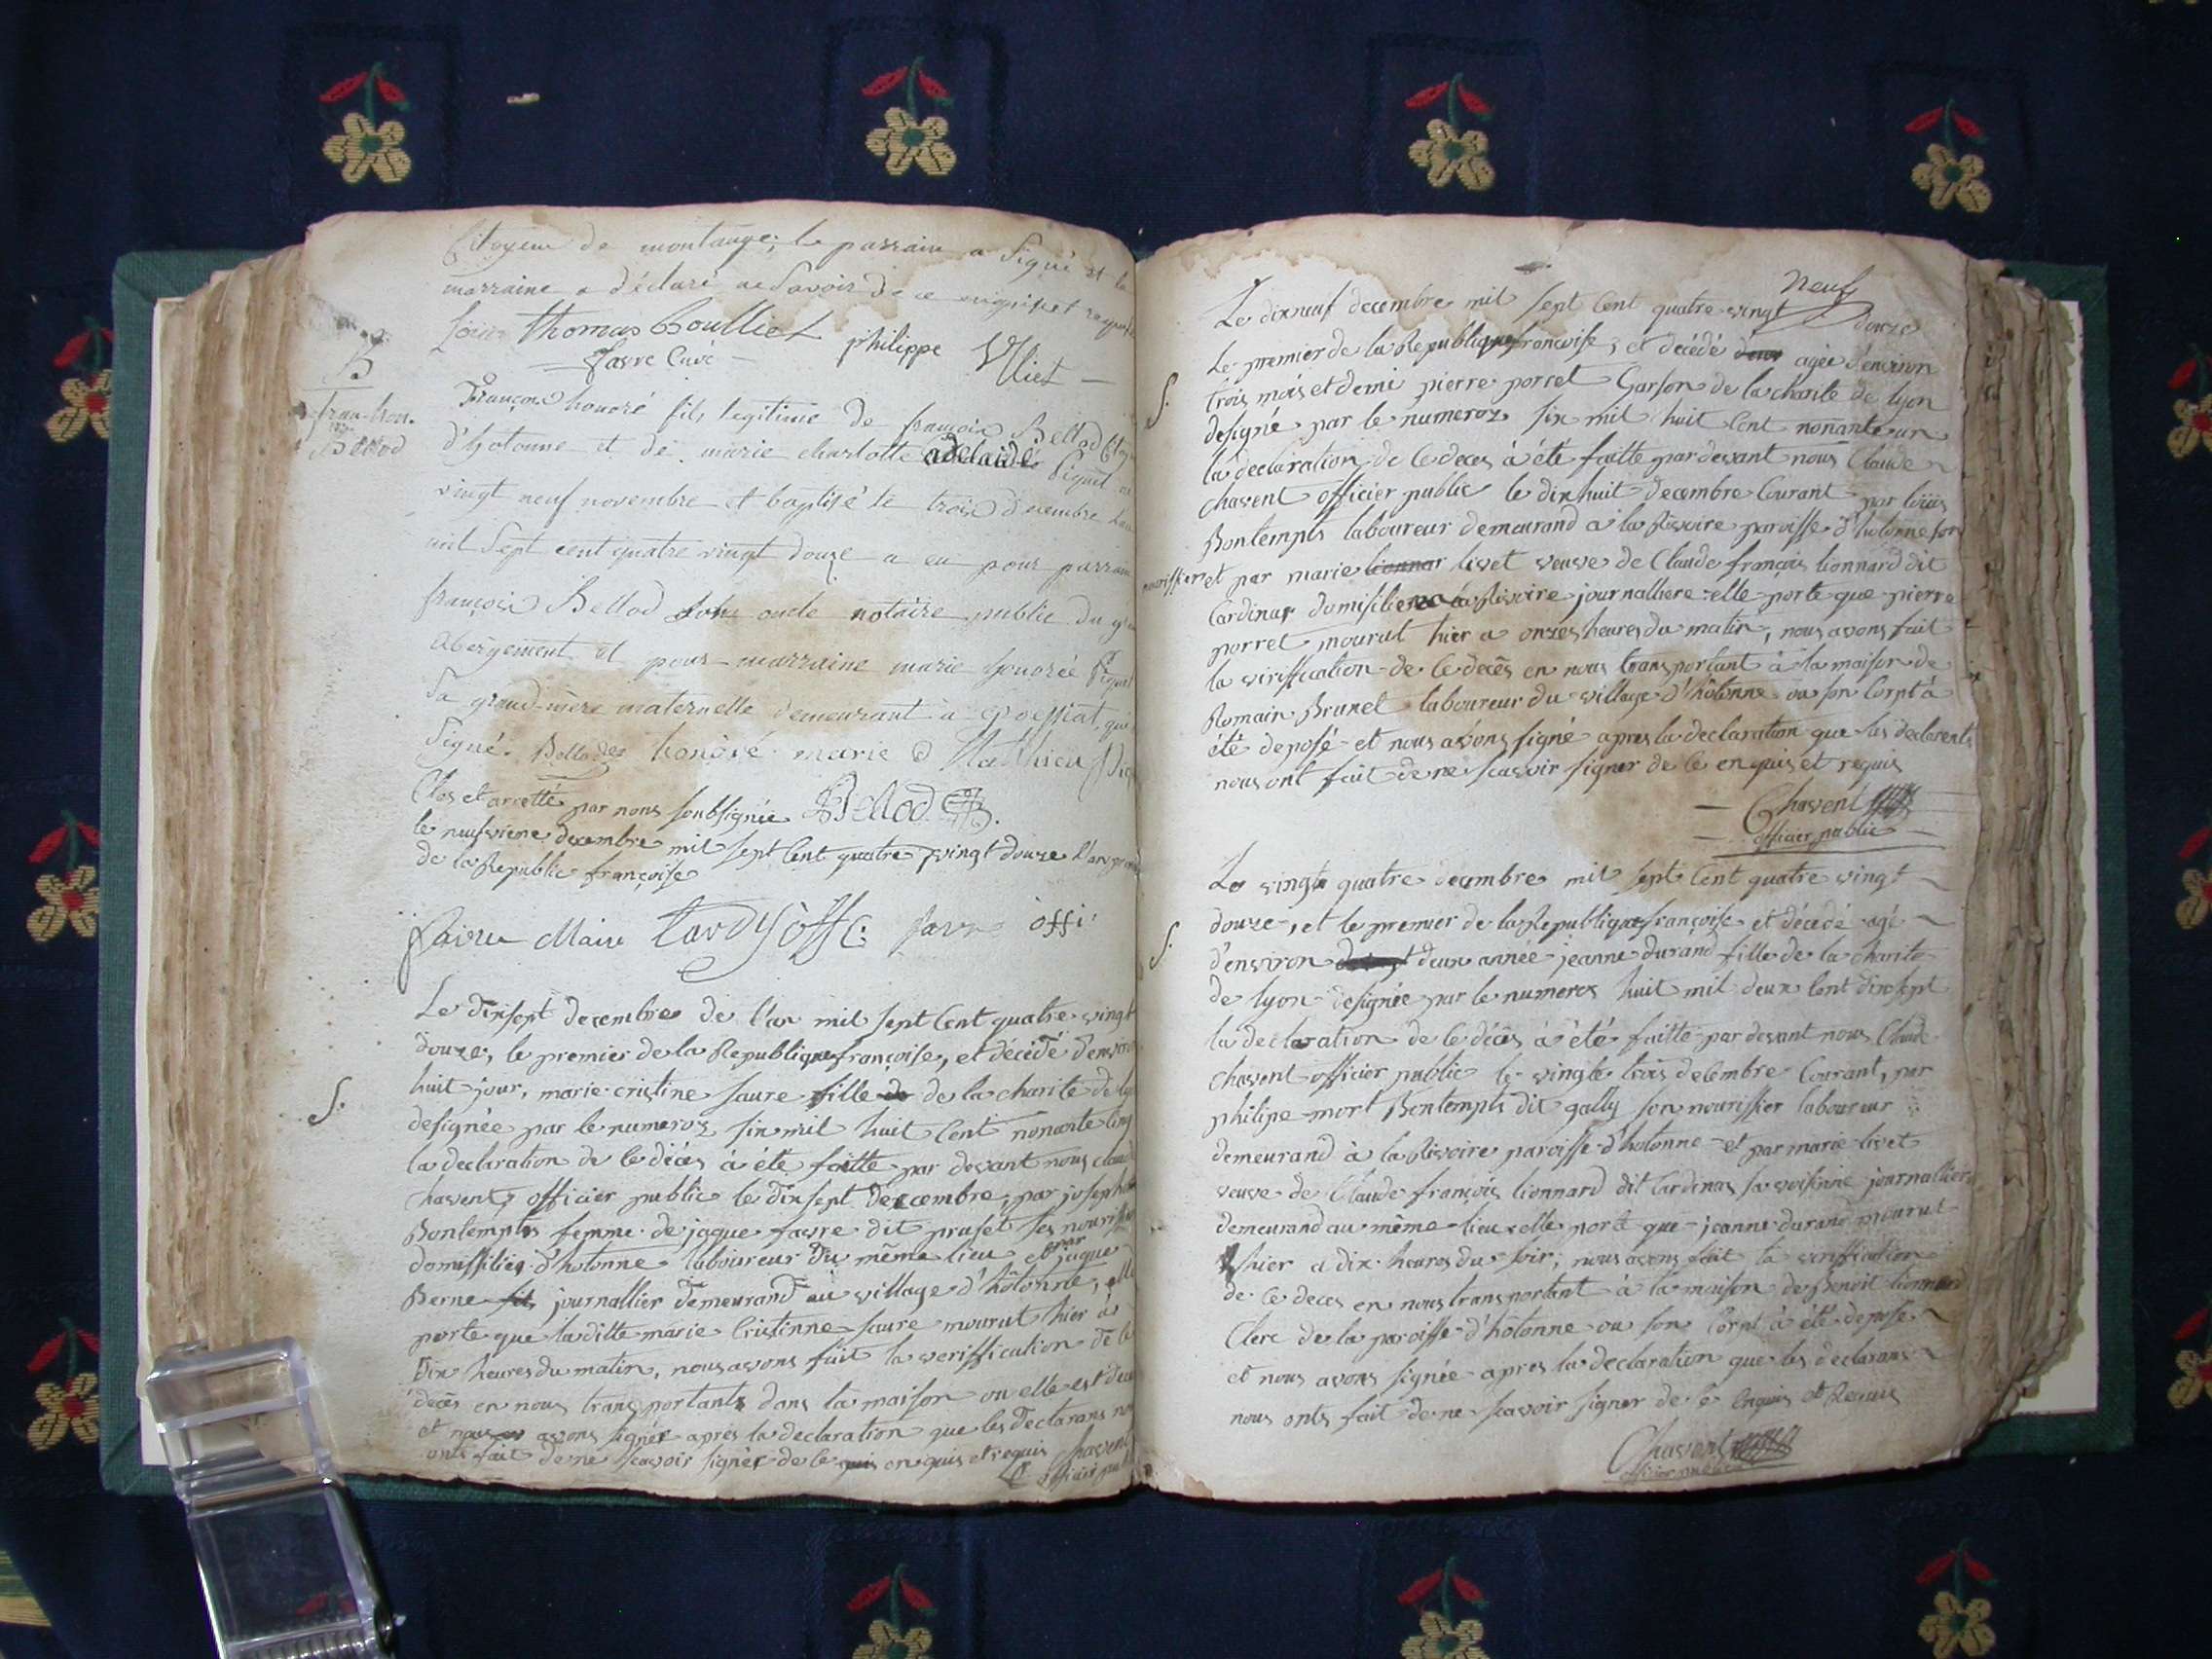 Citoyen de montange; le parrain a signé et la
marraine a déclaré ne savoir de ce enquis et requise
thomas Boulliet philippe Vlliet
favre Curé
B
fran. hon.
Bellod
François honoré fils legitime de françois Bellod
d'hotonne et de marie charlotte adelaide Piquet
vingt neuf novembre et baptisé le trois decembre
mil sept cent quatre vingt douze a eu pour parrain
françois Bellod son oncle notaire public du
abergement et pour marraine marie honorée Piquet
sa grand-mère maternelle demeurant a
signé. honoré marie Matthieu
Clos et arretté par nous soubsignée Bellod
le neufvieme decembre mil sept Cent quatre vingt douze l'an
de la Republic françoise
faivre Maire tardy offi: favre offi:
Le dixsept decembre de l'an mil sept Cent quatre vingt
douze, le premier de la Republique françoise, et décédé d'environ
huit jour, marie cristine faure fille de de la charite de
S.
designée par le numeroz six mil huit Cent nonante
la declaration de ce décès à été faitte par devant nous
chavent officier public le dixsept decembre, par
Bontempts femme de jaque favre dit pruset
domissiliés d'hotonne laboureur du même lieu et par jaque
Berne fils journallier demeurand au village d'hôtonne,
porte que laditte marie Cristinne faure mourut hier à
dix heures du matin, nous avons fait la verifficution de ce
décès en nous transportants dans la maison ou elle est
et nous avons signér après la declaration que les declarans
onts fait de ne scavoir signér de ce enquis et requis Chavent
officier
neuf
Le dixneuf decembre mil sept Cent quatre vingt douze
Le premier de la Republique françoise, et décédé agée d'environ
trois mois et demi pierre porret Garson de la charite de lyon
S.
designé par le numeroz six mil huit Cent nonante un
la declaration de ce deces à été faitte par devant nous Claude
chavent officier public le dix huit decembre Courant par loüis
Bontempts laboureur demeurand à la Rivoire paroisse d'hotonne son
nourissier et par marie lionnar livet veuve de Claude françois lionnard dit
Cardinas domisiliée à la Rivoire journalliere elle porte que pierre
porret mourut hier a onzes heures du matin, nous avons fait
la viriffication de ce décès en nous transportant à la maison de
Romain Brunel laboureur du village d'hôtonne ou son Corpt à
été deposé et nous avons signé apres la declaration que les declarents
nous ont fait de ne scavoir signer de ce enquis et requis
Chavent
officier public
Le vingt quatre decembre mil sept Cent quatre vingt
douze, et le premier de la Republique françoise et décédé agé
S.
d'environ deux année jeanne durand fille de la charite
de lyon designée par le numeros huit mil deux Cent dixsept
la declaration de ce décès à été faitte par devant nous Claude
chavent officier public le vingte trois decembre Courant, par
philipe mort Bontempts dit gally son nourissier laboureur
demeurand à la Rivoire paroisse d'hotonne et par marie livet
veuve de Claude françois lionnard dit Cardinas sa voisinne journalliere
demeurand au même lieu elle porte que jeanne durand mourut
hier a dix heures du soir; nous avons fait la veriffication
de ce deces en nous transportant à la maison de Benoit lionnard
Clerc de la paroisse d'hôtonne ou son Corpt à été deposé
et nous avons signée apres la declaration que les declarans
nous onts fait de ne scavoir signer de ce enquis et Requis
Chavent
officier public